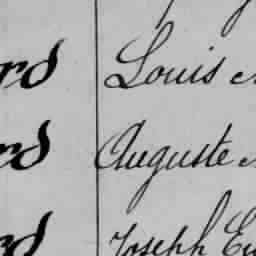 rd Louis
rd Auguste
rd Joseph Eu